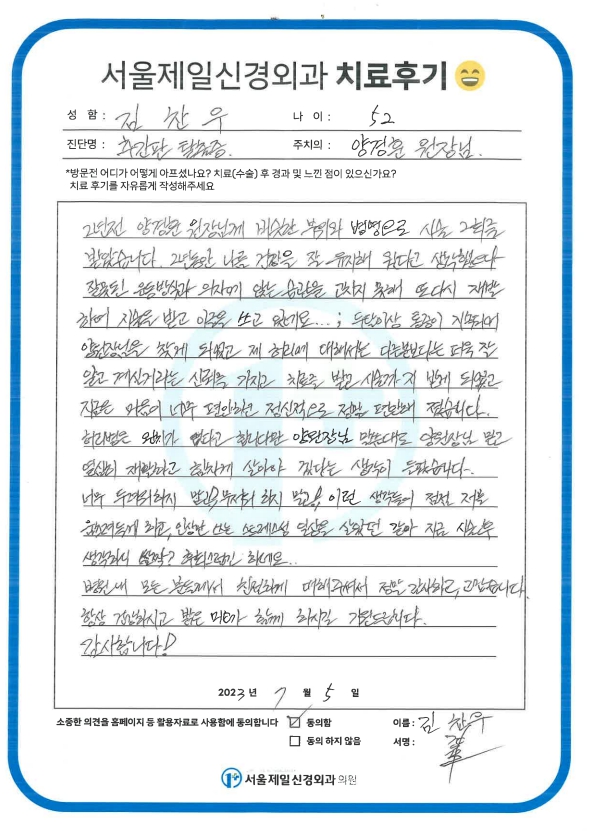 서울제일신경외과 치료후기
성 함 : 김 찬 우 나 이 : 52
진단명 : 추간판 탈출증. 주치의 : 양경훈 원장님.
*방문전 어디가 어떻게 아프셨나요? 치료(수술) 후 경과 및 느낀 점이 있으신가요?
치료 후기를 자유롭게 작성해주세요
2년전 양경훈 원장님께 비슷한 부위와 병명으로 시술 2회를
받았습니다. 2년동안 나름 건강을 잘 유지해 왔다고 생각했는데
잘못된 운동방식과 의자에 앉는 습관을 고치지 못해 또다시 재발
하여 시술을 받고 이글을 쓰고 있군요...; 두달이상 통증이 지속되어
양원장님을 찾게 되었고 제 허리에 대해서는 다른분보다는 더욱 잘
알고 계신거라는 신뢰를 가지고 치료를 받고 시술까지 받게 되었고
지금은 마음이 너무 편안하고 정신적으로 정말 편안해 졌습니다.
허리병은 완치가 없다고 합니다만 양원장님 말씀대로 양원장님 믿고
열심히 재활하고 힘차게 살아야 겠다는 생각이 들었습니다.
너무 두려워하지 말고, 무시하지 말고, 이런 생각들이 점점 저를
하고, 인상만 쓰는 스트레스성 일상을 살았던 같아 지금 시술후
생각하니 살짝? 후회스럽긴 하네요..
병원내 모든 분들께서 친절하게 대해주셔서 정말 감사하고, 고맙습니다.
항상 건강하시고 밝은 미소가 함께 하시길 기원드립니다.
감사합니다!
2023년 7 월 5 일
소중한 의견을 홈페이지 등 활용자료로 사용함에 동의합니다 동의함 이름 : 김 찬우
동의 하지 않음 서명 :
서울제일신경외과 의원